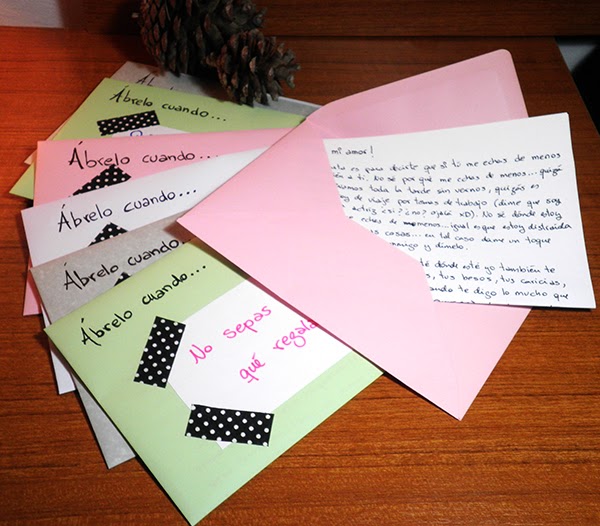 Ábrelo cuando...
Ábrelo cuando...
Ábrelo cuando...
Ábrelo cuando...
Ábrelo cuando...
Ábrelo cuando...
No sepas
qué regala
mi amor!
es para decirte que si tú me echas de menos
a ti. No sé por qué me echas de menos... quizás
toda la tarde sin vernos, quizás es
de viaje por temas de trabajo (dime que soy
actriz ¿si? ¿no? ojalá xD). No sé dónde estoy
echas de menos... igual es que estoy distraída
cosas... en tal caso dame un toque
conmigo y dímelo.
té dónde esté yo también te
tus besos, tus caricias,
te digo lo mucho que